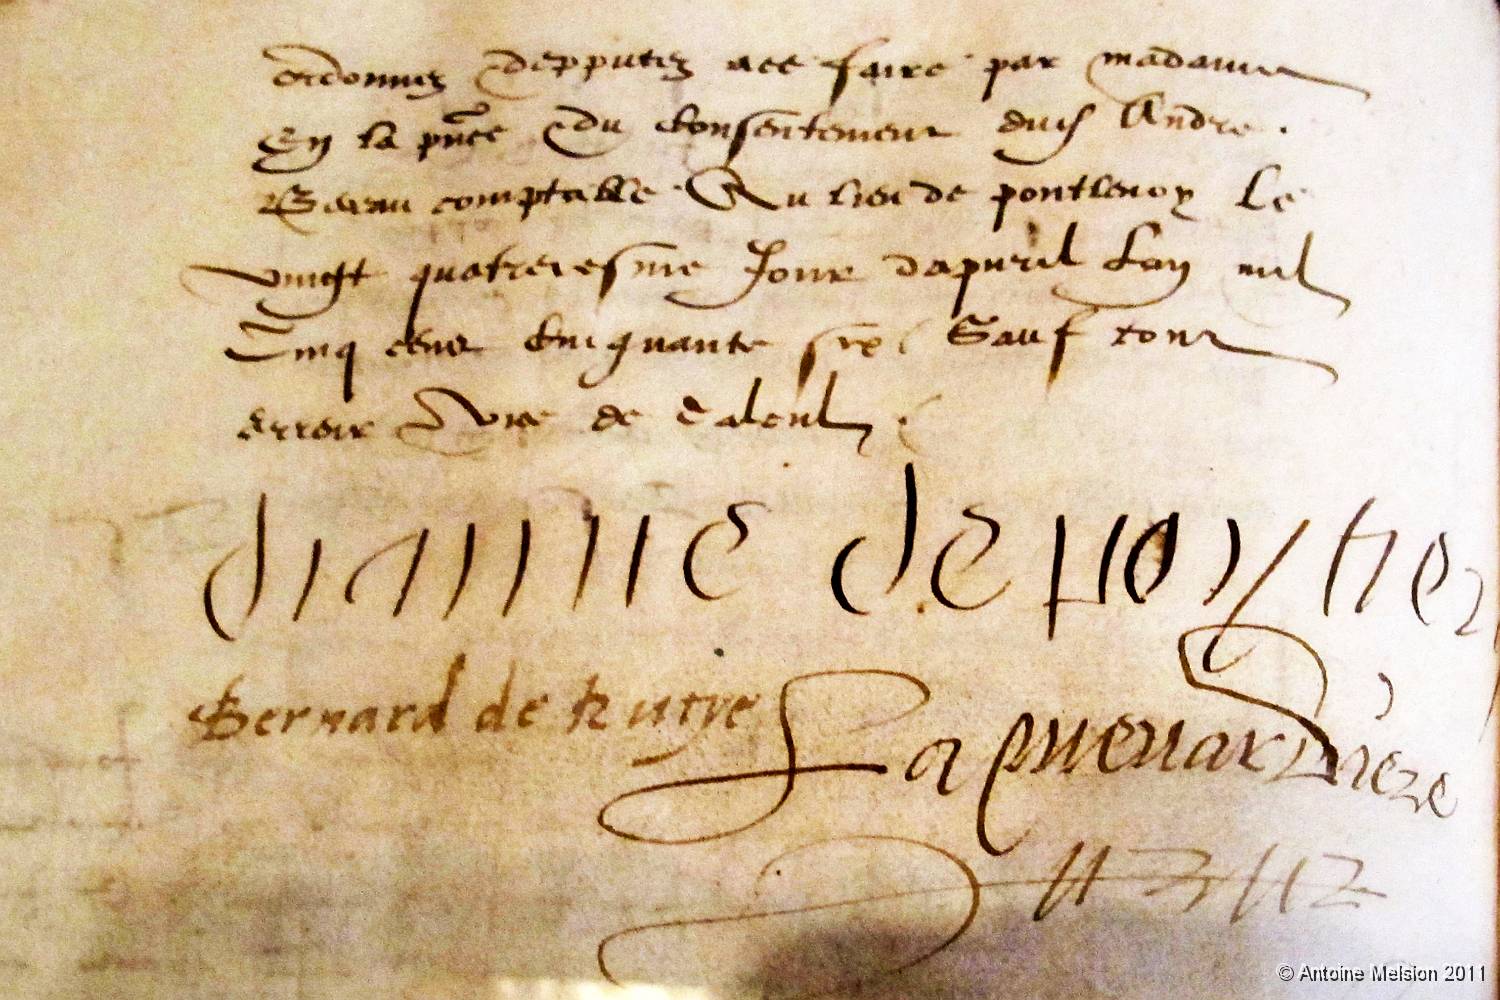 ordonnez depputez ace faire par madame
En la pnce du consentement dud André
Bereau comptable Au lieu de pontlevoy Le
vingt quatreiesme Jour dapvril Lan mil
Cinq cens Cinquante six Sauf tout
erreur vice de calcul
dianne de poytiez
Bernard de Rutye
La
© Antoine Meision 2011